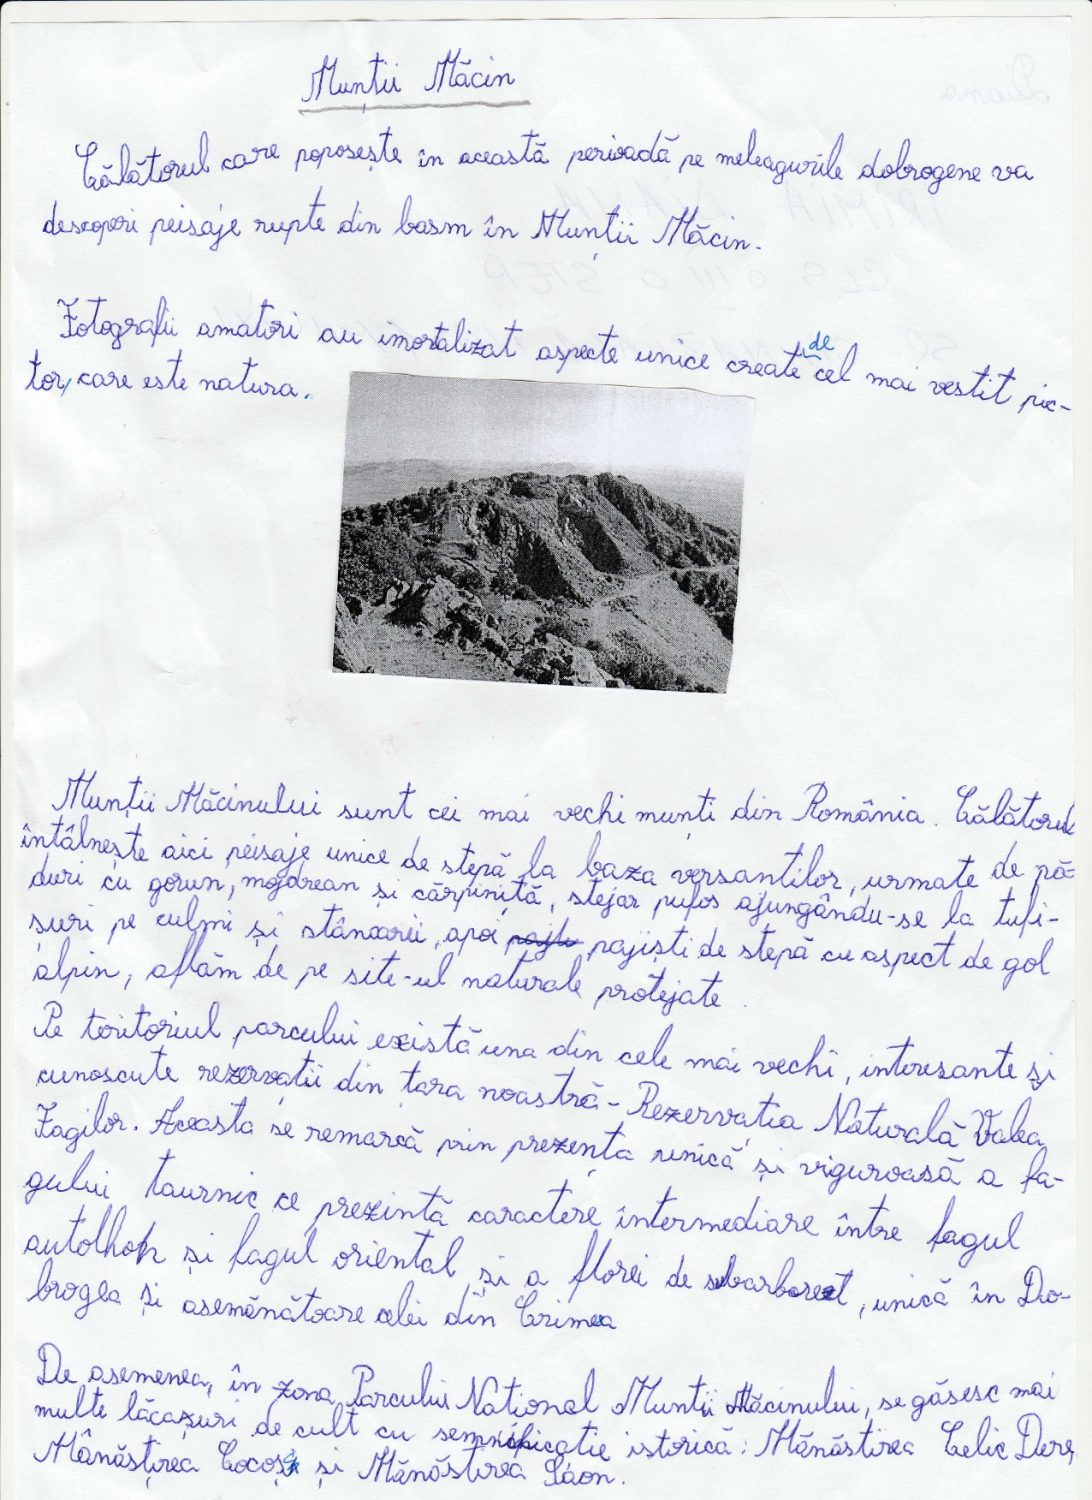 Munții Măcin
Călătorul care poposește în această perioadă pe meleagurile dobrogene va
descoperi peisaje rupte din basm în Munții Măcin.
Fotografii amatori au imortalizat aspecte unice create de cel mai vestit pic-
tor, care este natura.
Munții Măcinului sunt cei mai vechi munți din România. Călătorul
întâlnește aici peisaje unice de stepă la baza versantilor, urmate de pă-
duri cu gorun, mojdrean și cărpiniță, stejar pufos ajungându-se la tufi-
șuri pe culmi și stâncarii, apoi pajiști de stepă cu aspect de gol
alpin, aflăm de pe site-ul naturale protejate.
Pe teritoriul parcului există una din cele mai vechi, interesante și
cunoscute rezervații din țara noastră - Rezervatia Naturală Valea
Fagilor. Aceasta se remarcă prin prezența unică și viguroasă a fa-
gului taurnic ce prezintă caractere intermediare între fagul
autolhoh și fagul oriental și a florei de subarboret, unică în Do-
brogea și asemănătoare celei din Crimea
De asemenea, în zona Parcului National Muntii Măcinului, se găsesc mai
multe lăcașuri de cult cu semnificatie istorică: Mănăstirea Celic Dere,
Mânăstirea Cocoș și Mănăstirea Saon.